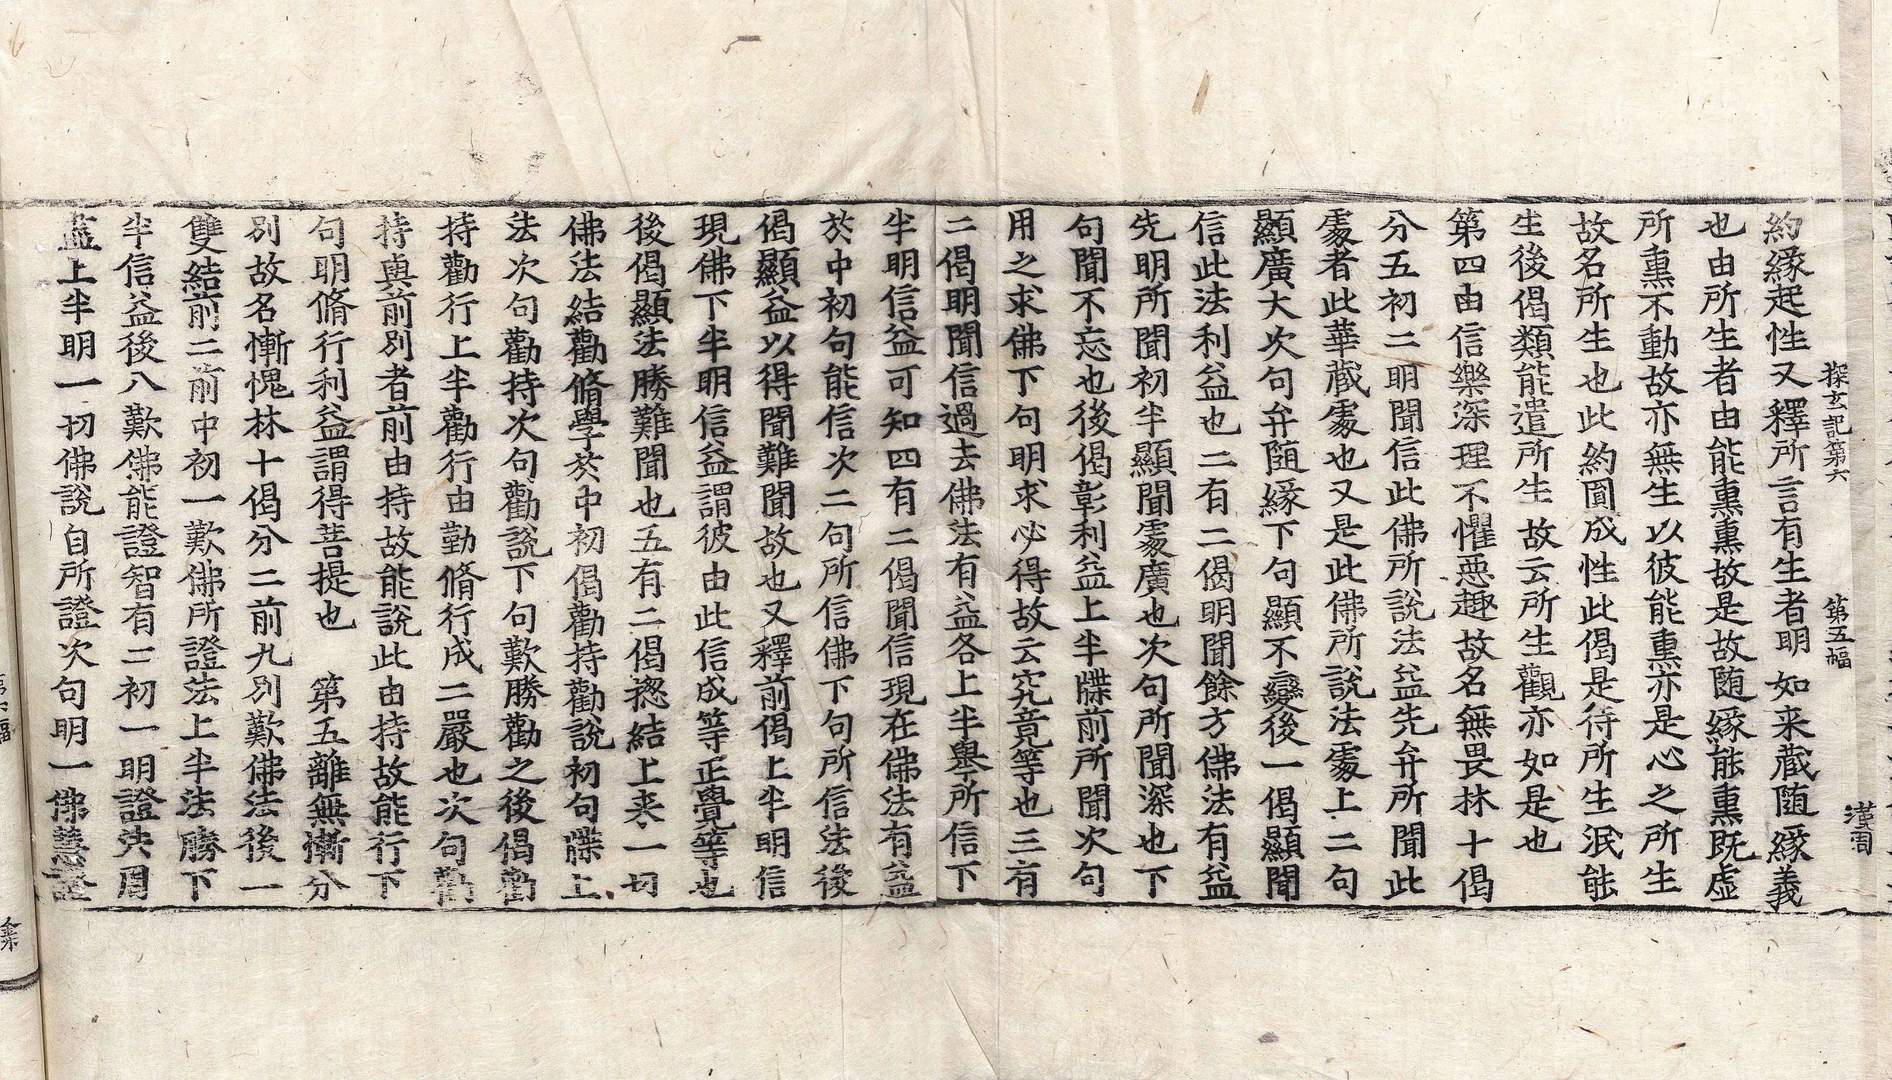 探玄記第六 第五幅 漢周
約緣起性又釋所言有生者明如来藏随緣義
也由所生者由能熏熏故是故随緣能熏旣虛
所熏不動故亦無生以彼能熏亦是心之所生
故名所生也此約圎成性此偈是待所生泯能
生後偈類能遣所生故云所生觀亦如是也
第四由信樂深理不懼惡趣故名無畏林十偈
分五初二明聞信此佛所說法益先弁所聞此
䖏者此華藏䖏也又是此佛所說法䖏上二句
顯廣大次句弁随緣下句顯不變後一偈顯聞
信此法利益也二有二偈明聞餘方佛法有益
先明所聞初半顯聞䖏廣也次句所聞深也下
句聞不忘也後偈彰利益上半牒前所聞次句
用之求佛下句明求必得故云究竟等也三有
二偈明聞信過去佛法有益各上半舉所信下
半明信益可知四有二偈聞信現在佛法有益
於中初句能信次二句所信佛下句所信法後
偈顯益以得聞難聞故也又釋前偈上半明信
現佛下半明信益謂彼由此信成等正覺等也
後偈顯法勝難聞也五有二偈揔結上来一切
佛法結勸脩學於中初偈勸持勸說初句牒上
法次句勸持次句勸說下句歎勝勸之後偈勸
持勸行上半勸行由勤脩行成二嚴也次句勸
持與前別者前由持故能說此由持故能行下
句明脩行利益謂得菩提也 第五離無慚分
別故名慚愧林十偈分二前九別歎佛法後一
雙結前二前中初一歎佛所證法上半法勝下
半信益後八歎佛能證智有二初一明證法周
盡上半明一切佛說自所證次句明一佛慧證